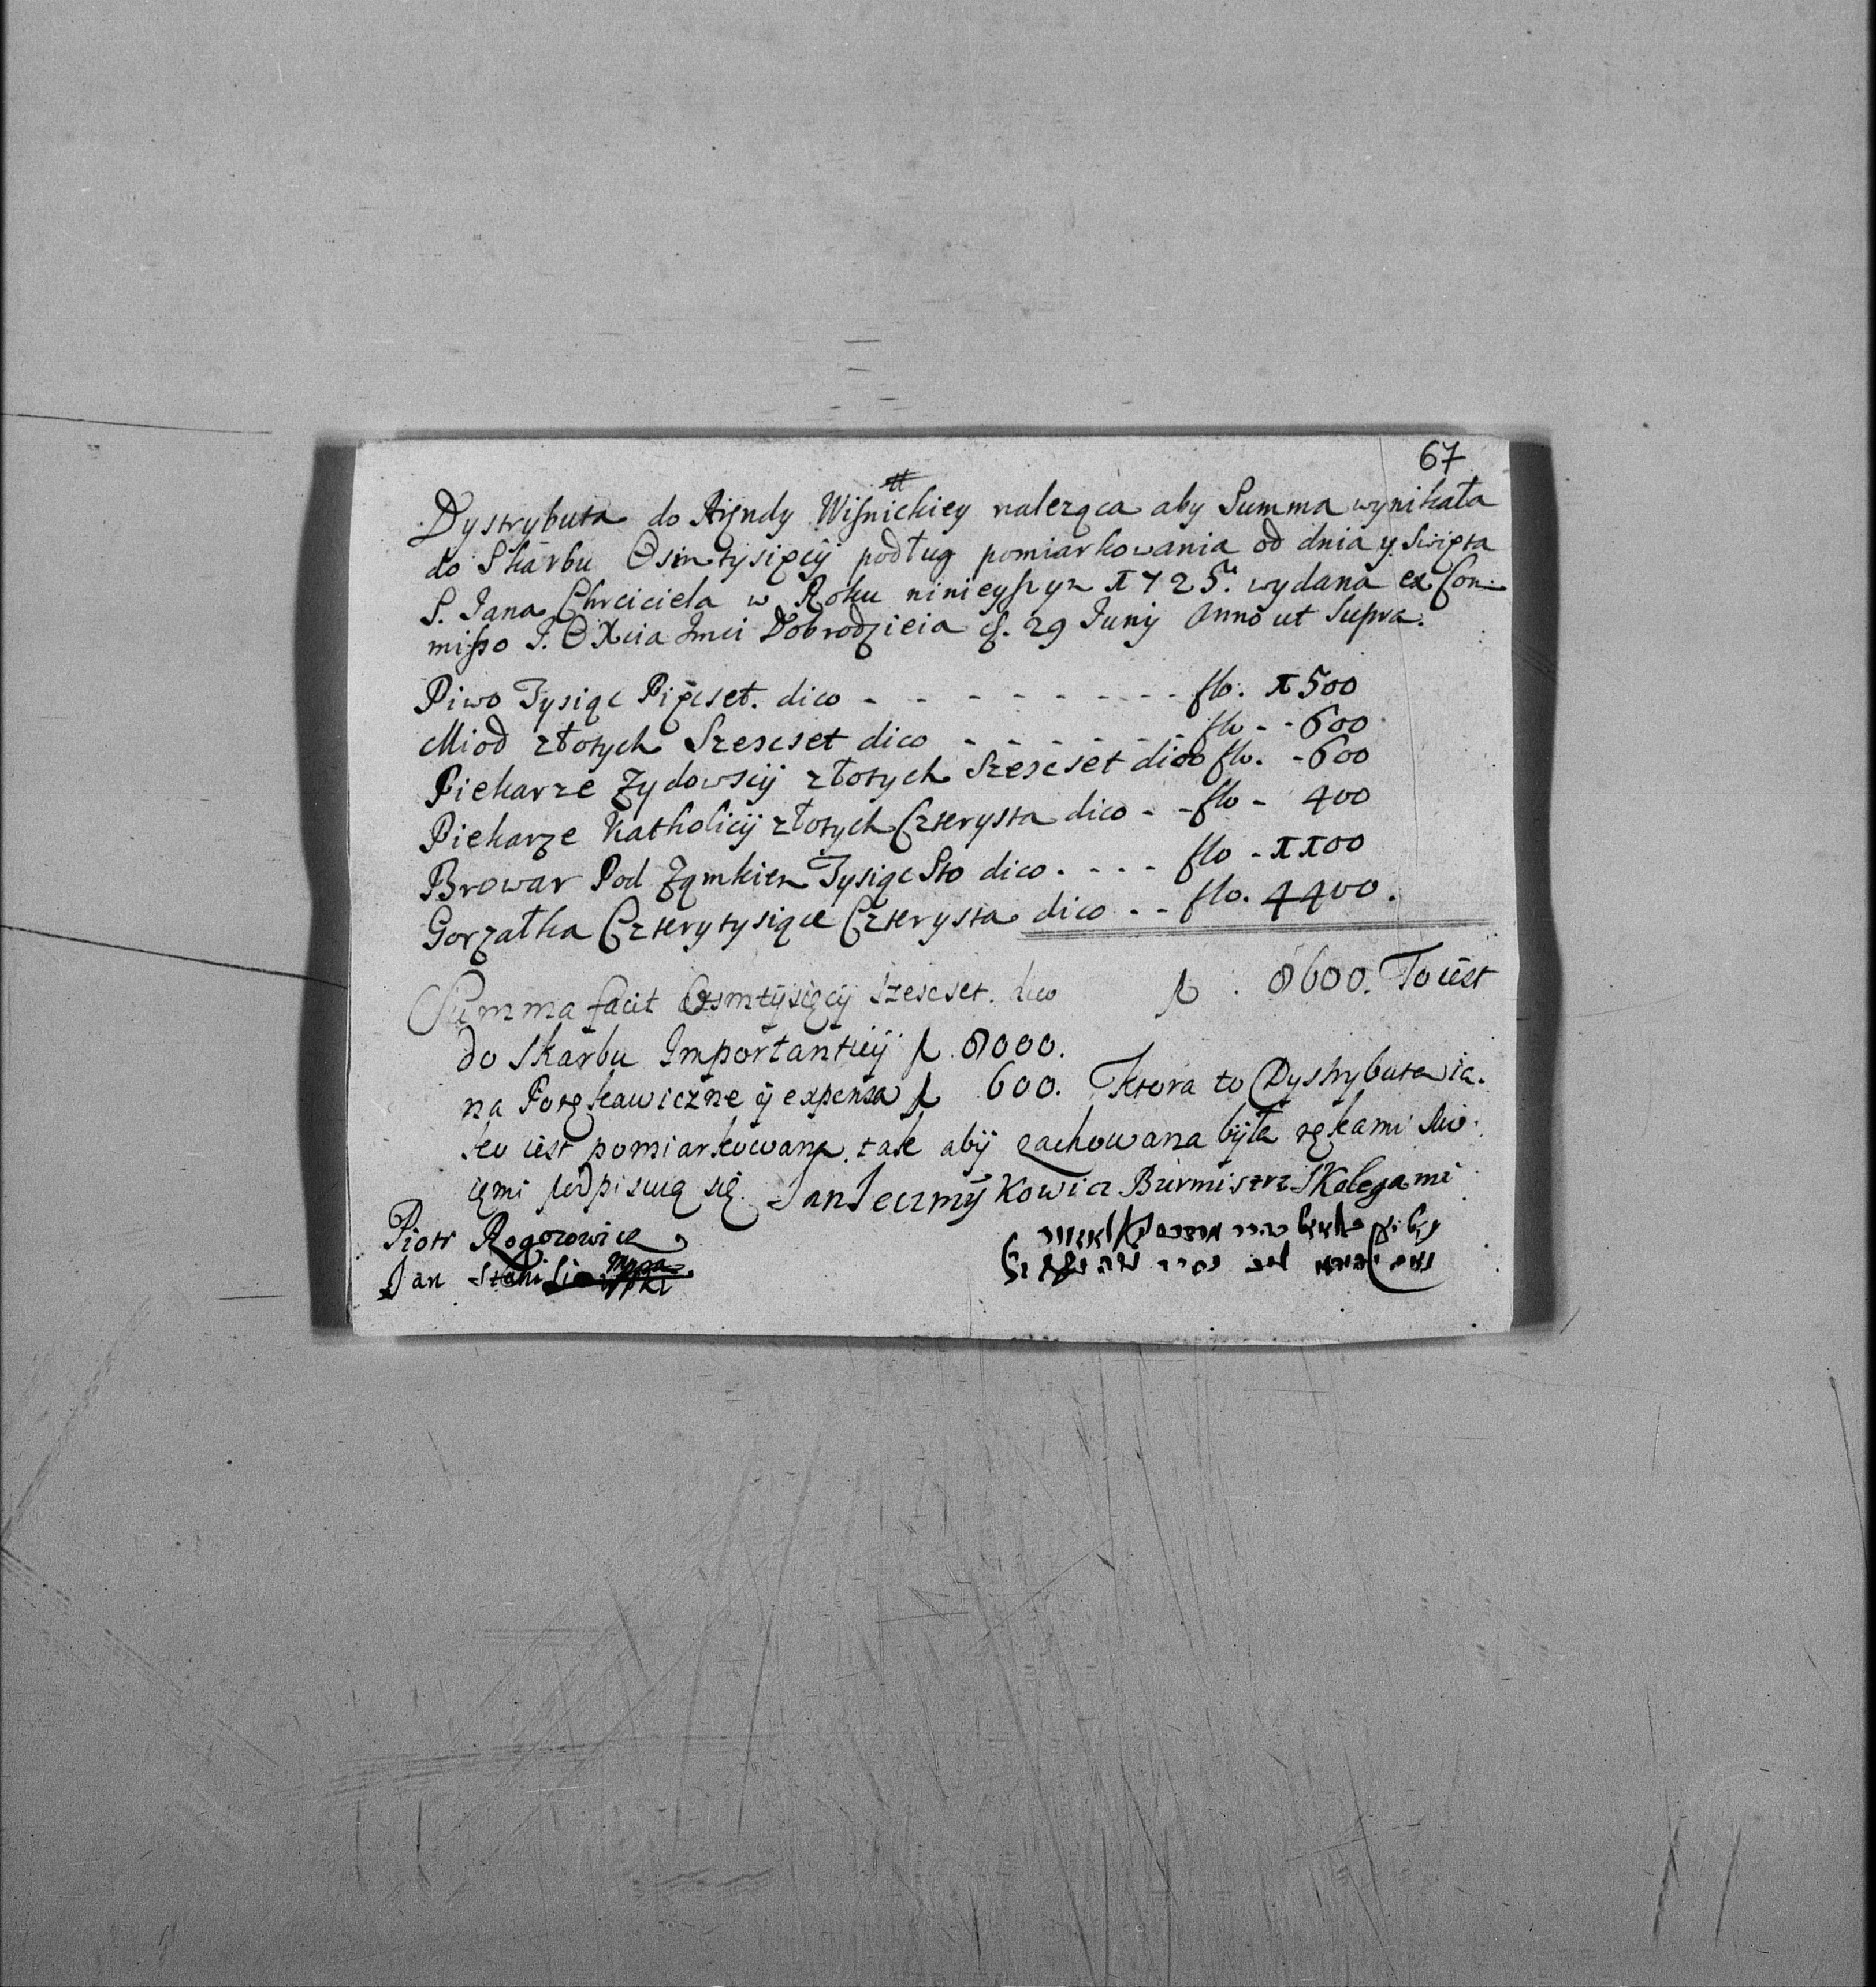 67
Dystrybuta do Aręndy Wiśnickiey naleząca aby Summa wynikała
do Skarbu Osmtysięcy podług pomiarkowania od dnia y Swięta
S. Jana Chrciciela w Roku ninieyszym 1725. wydana ex Com-
misso J. O Xcia Jmci Dobrodzieia d. 29 Juny Anno ut Supra.
Piwo Tysiąc Pięcset. dico - - - - - - - - - flo. 1500
Miod złotych Szescset dico - - - - - - flo - - 600
Piekarze Zydowscy złotych Szescset dico flo. - 600
Piekarze Katholicy złotych Czterysta dico - - flo - 400
Browar Pod Ząmkiem Tysiąc Sto dico . . . - flo - 1100
Gorzałka Czterytysiące Czterysta dico . . - flo. 4400.
Summa facit Osmtysięcy Szescset. dico fl : 8600. To iest
do Skarbu Importantiey fl. 8000.
na Porękawiczne y expensa fl 600. Ktora to Dystrybuta ia-
ko iest pomiarkowana. tak aby zachowana była rękami Swo-
ięmi podpisuią się. Jan Jeczmykowicz Burmistrz Skolegami
Piotr Rogozowicz
Jan